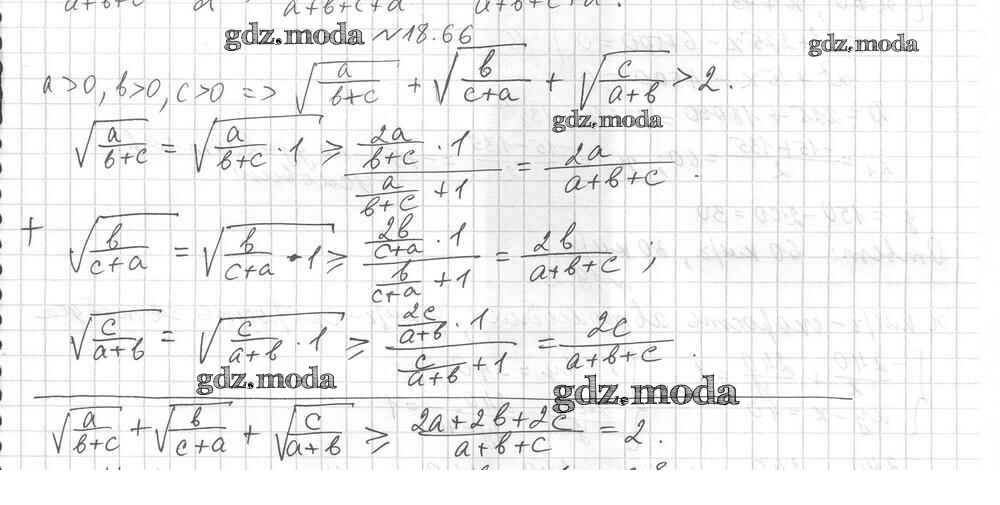 a+b+c+d a+b+c+d
gdz.moda №18.66
gdz.moda
a>0, b>0, c>0 => √(a/(b+c)) + √(b/(c+a)) + √(c/(a+b)) > 2.
gdz.moda
√(a/(b+c)) = √(a/(b+c) · 1) ⩾ (2a/(b+c) · 1)/(a/(b+c) + 1) = 2a/(a+b+c).
+ √(b/(c+a)) = √(b/(c+a) · 1) ⩾ (2b/(c+a) · 1)/(b/(c+a) + 1) = 2b/(a+b+c);
√(c/(a+b)) = √(c/(a+b) · 1) ⩾ (2c/(a+b) · 1)/(c/(a+b) + 1) = 2c/(a+b+c).
gdz.moda
gdz.moda
√(a/(b+c)) + √(b/(c+a)) + √(c/(a+b)) ⩾ (2a+2b+2c)/(a+b+c) = 2.